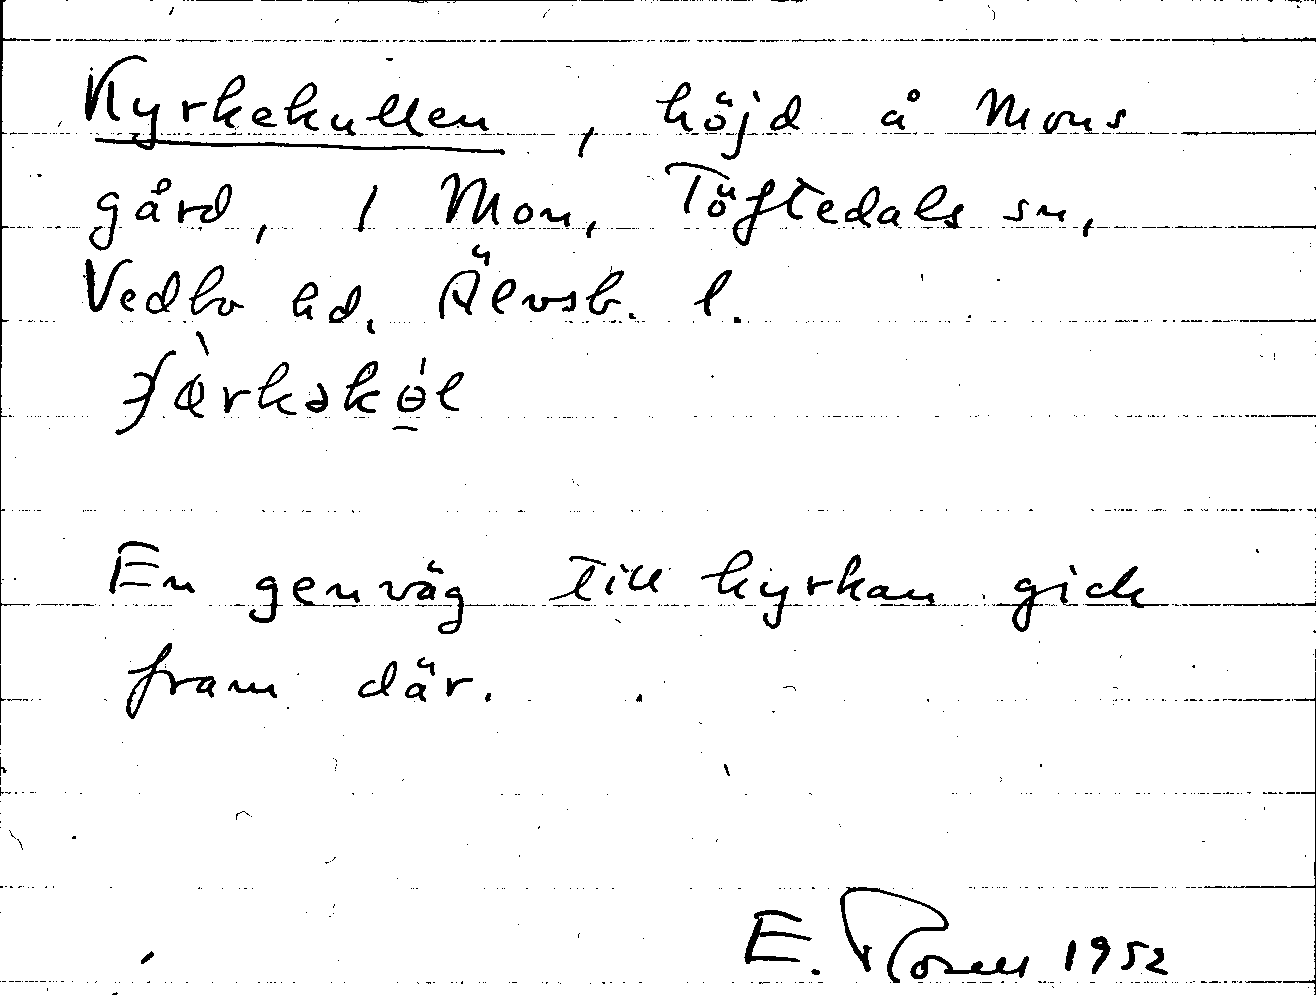 Kyrkekullen, höjd å Mons
gård, 1 Mon, Töftedals sn,
Vedbo hd, Älvsb. l.
En genväg till kyrkan gick
fram där.
E. Rosell 1952